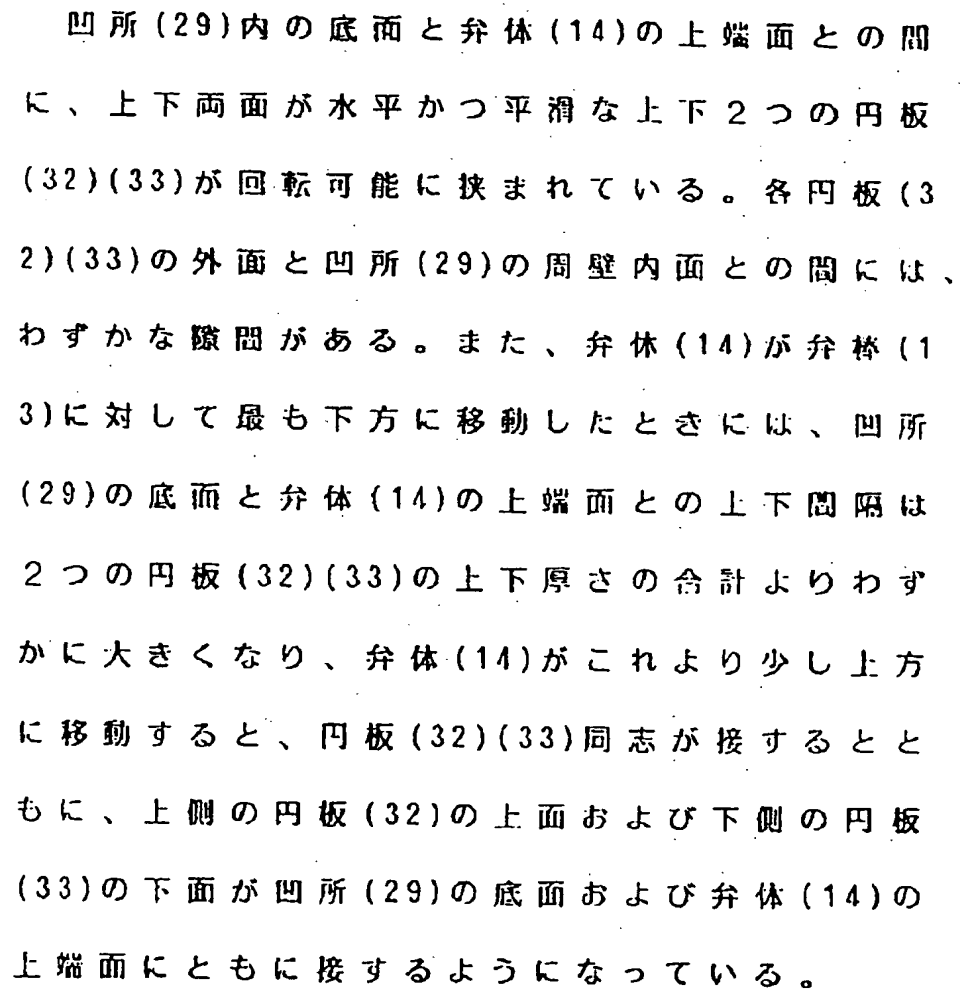 凹所(29)内の底面と弁体(14)の上端面との間
に、上下両面が水平かつ平滑な上下2つの円板
(32)(33)が回転可能に挟まれている。各円板(3
2)(33)の外面と凹所(29)の周壁内面との間には、
わずかな隙間がある。また、弁体(14)が弁棒(1
3)に対して最も下方に移動したときには、凹所
(29)の底面と弁体(14)の上端面との上下間隔は
2つの円板(32)(33)の上下厚さの合計よりわず
かに大きくなり、弁体(14)がこれより少し上方
に移動すると、円板(32)(33)同志が接するとと
もに、上側の円板(32)の上面および下側の円板
(33)の下面が凹所(29)の底面および弁体(14)の
上端面にともに接するようになっている。